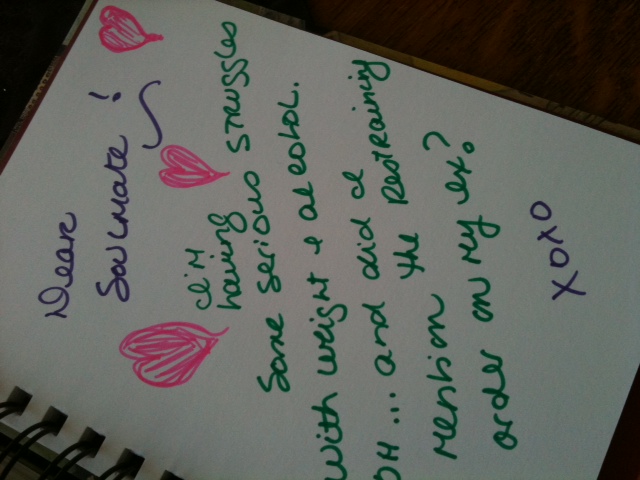 Dear
Soulmate!
I'm
having
some serious struggles
with weight & alcohol.
OH... and did I
mention the restraining
order on my ex?
xoxo